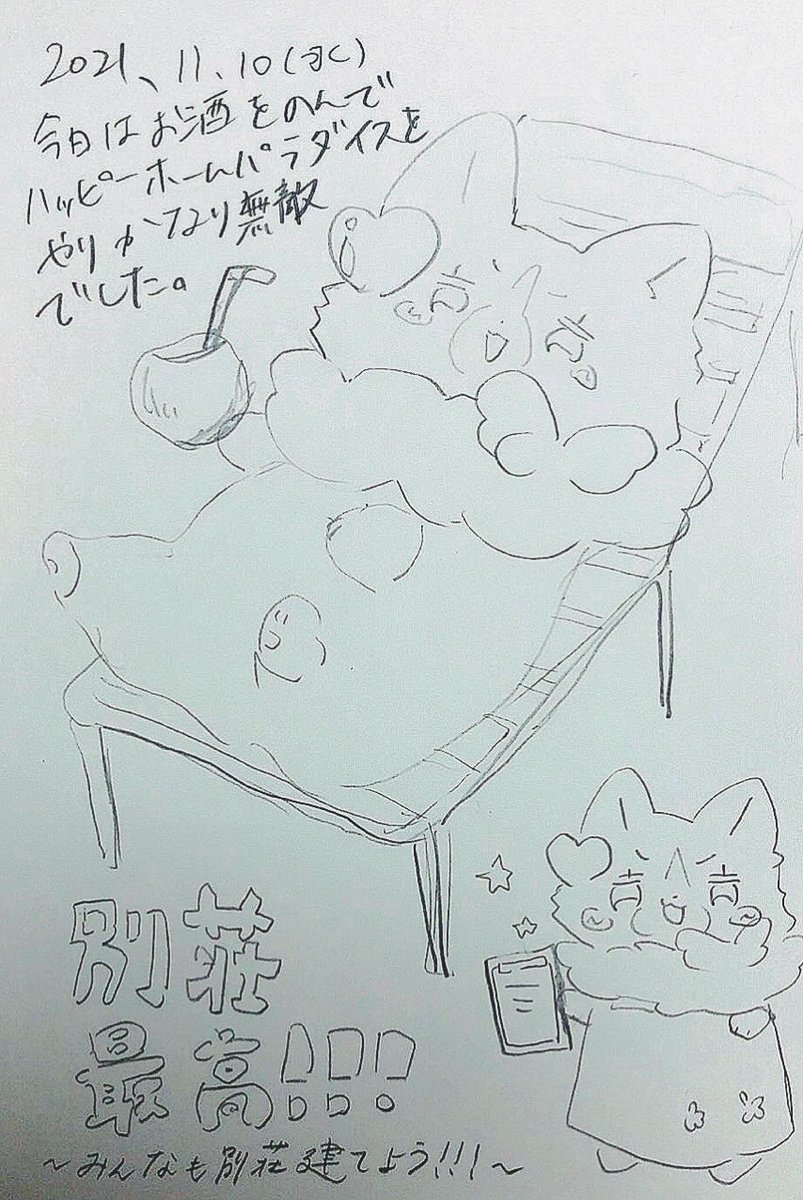 2021、11.10(水)
今日はお酒をのんで
ハッピーホームパラダイスを
やりかなり無敵
でした。
別荘
最高!!!
~みんなも別荘建てよう!!!~